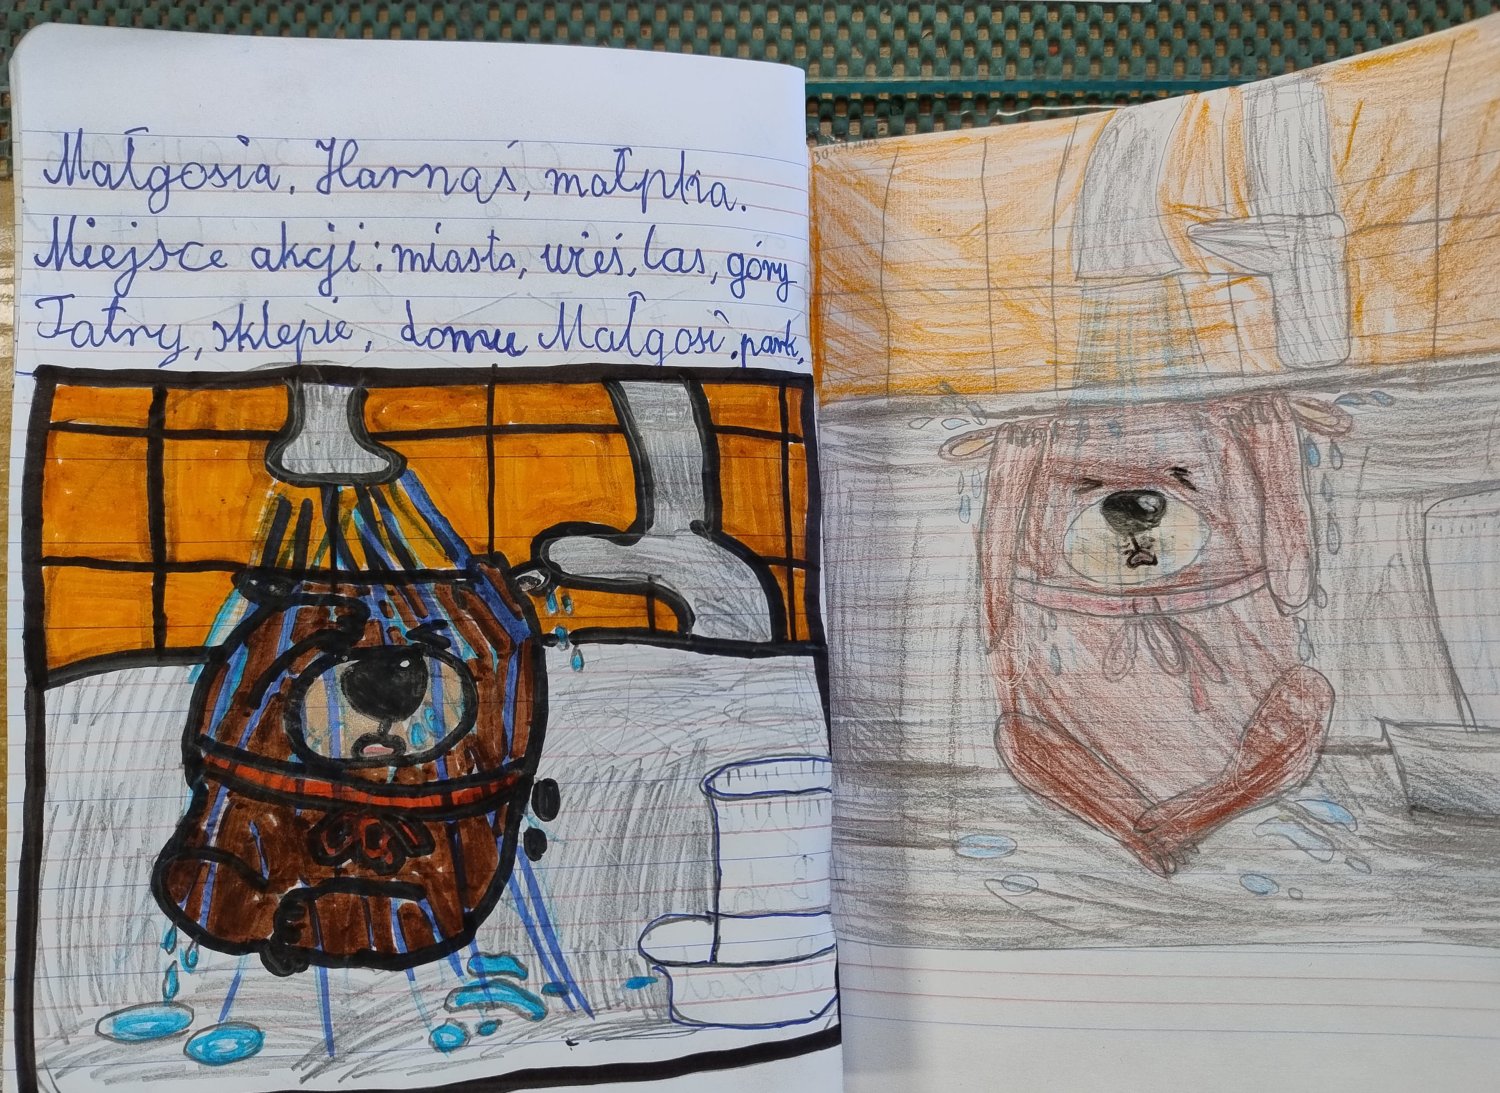 Małgosia, Harnąś, małpka.
Miejsce akcji: miasta, wieś, las, góry
Tatry, sklepie, domu Małgosi, park,